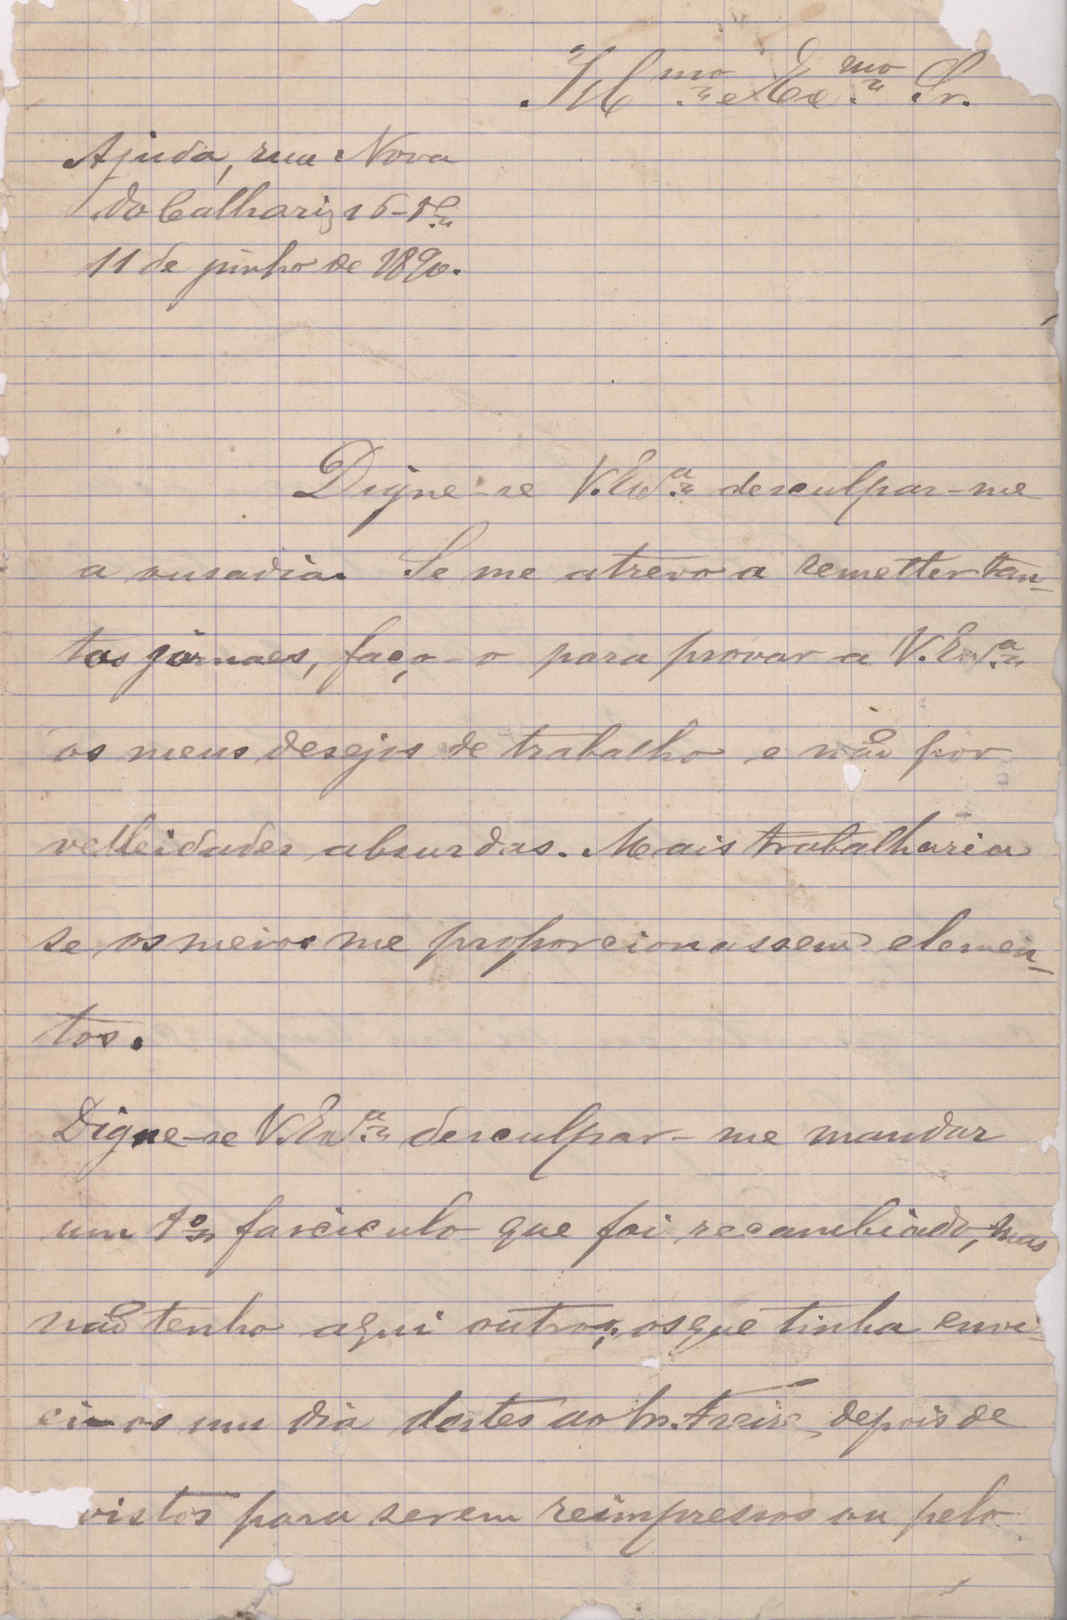 Ill.mo e Ex.mo Sr.
Ajuda, rua Nova
do Calhariz 16-1º
11 de junho de 1890.
Digne-se V. Ex.a desculpar-me
a ousadia. Se me atrevo a remetter tan-
tos jornaes, faço-o para provar a V. Ex.a
os meus desejos de trabalho e não por
velleidades absurdas. Mais trabalharia
se os meios me proporcionassem elemen-
tos.
Digne-se V. Ex.a desculpar-me mandar
um 1º fasciculo que foi recambiado, mas
não tenho aqui outros; os que tinha
os um dia destes ao Sr. depois de
vistos para serem reimpressos ou pelo